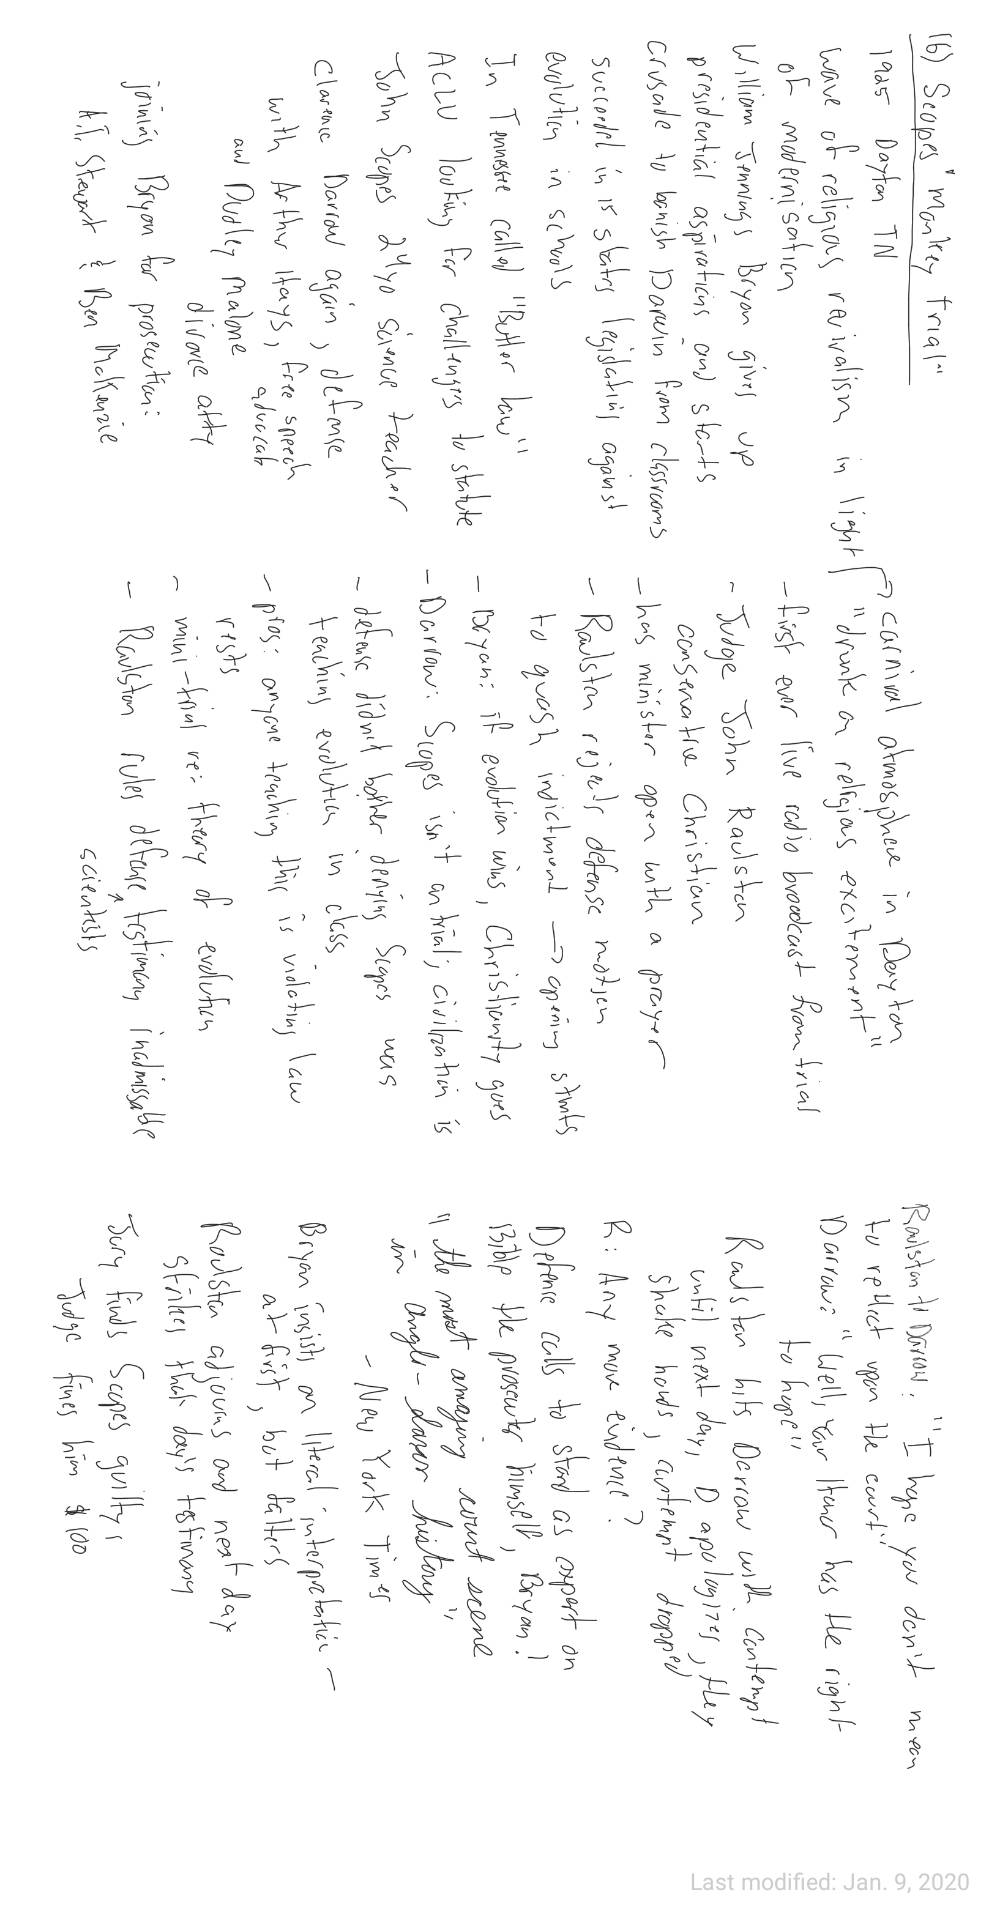 16) Scopes "Monkey trial"
1925 Dayton TN
wave of religious revivalism in light
of modernisation
William Jennings Bryan gives up
presidential aspirations and starts
crusade to banish Darwin from classrooms
succeeded in 15 states legislating against
evolution in schools
In Tennessee called "Butler law"
ACLU looking for challengers to statute
John Scopes 24yo science teacher
Clarence Darrow again, defense
with Arthur Hays, free speech
advocate
and Dudley Malone
divorce atty
joining Bryan for prosecution:
A.T. Stewart & Ben McKenzie
→ carnival atmosphere in Dayton
"drunk on religious excitement"
- first ever live radio broadcast from trial
- Judge John Raulston
conservative Christian
- has minister open with a prayer
- Raulston rejects defense motion
to quash indictment → opening stmts
- Bryan: if evolution wins, Christianity goes
- Darrow: Scopes isn't on trial; civilization is
- defense didn't bother denying Scopes was
teaching evolution in class
- pros: anyone teaching this is violating law
rests
- mini-trial re: theory of evolution
- Raulston rules defense testimony inadmissable
scientists
Raulston to Darrow: "I hope you don't mean
to reflect upon the court"
Darrow: "Well, Your Honor has the right
to hope"
Raulston hits Darrow with contempt
until next day, D apologizes, they
shake hands, contempt dropped
R: Any more evidence?
Defense calls to stand as expert on
Bible the prosecutor himself, Bryan!
"the most amazing court scene
in Anglo-Saxon history"
- New York Times
Bryan insists on literal interpretation -
at first, but falters
Raulston adjourns and next day
strikes that day's testimony
Jury finds Scopes guilty,
Judge fines him $100
Last modified: Jan. 9, 2020